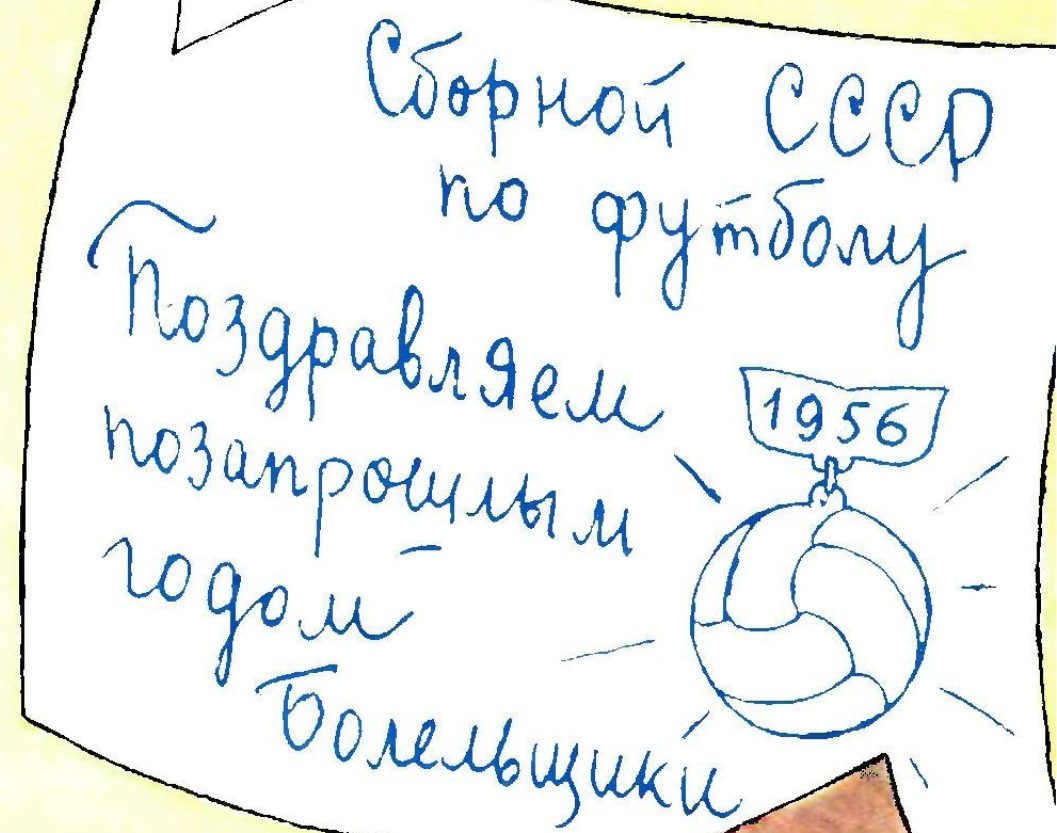 Сборной СССР
по футболу
Поздравляем
позапрошлым
годом
Болельщики
1956